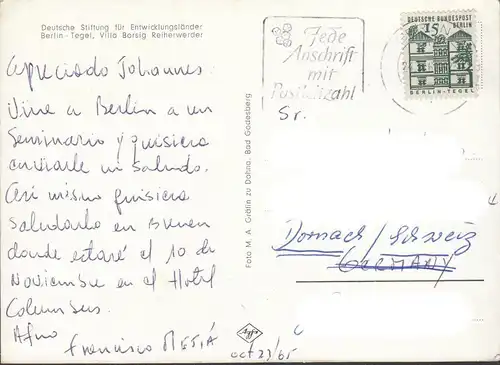 Deutsche Stiftung für Entwicklungsländer
Berlin - Tegel, Villa Borsig Reiherwerder
Apreciado Johannes
Vine a Berlin a un
Seminario y quisiera
enviarle un saludo.
Asi mismo quisiera
saludarlo en Bremen
donde estaré el 10 de
Noviembre en el Hotel
Columbus.
Afmo
Francisco MESIÁ
Foto M. A. Gräfin zu Dohna, Bad Godesberg
Agfa
oct 23/65
Jede
Anschrift
mit
Postleitzahl
DEUTSCHE BUNDESPOST
BERLIN
15
BERLIN-TEGEL
Sr.
Dornach/Schweiz
GERMANY